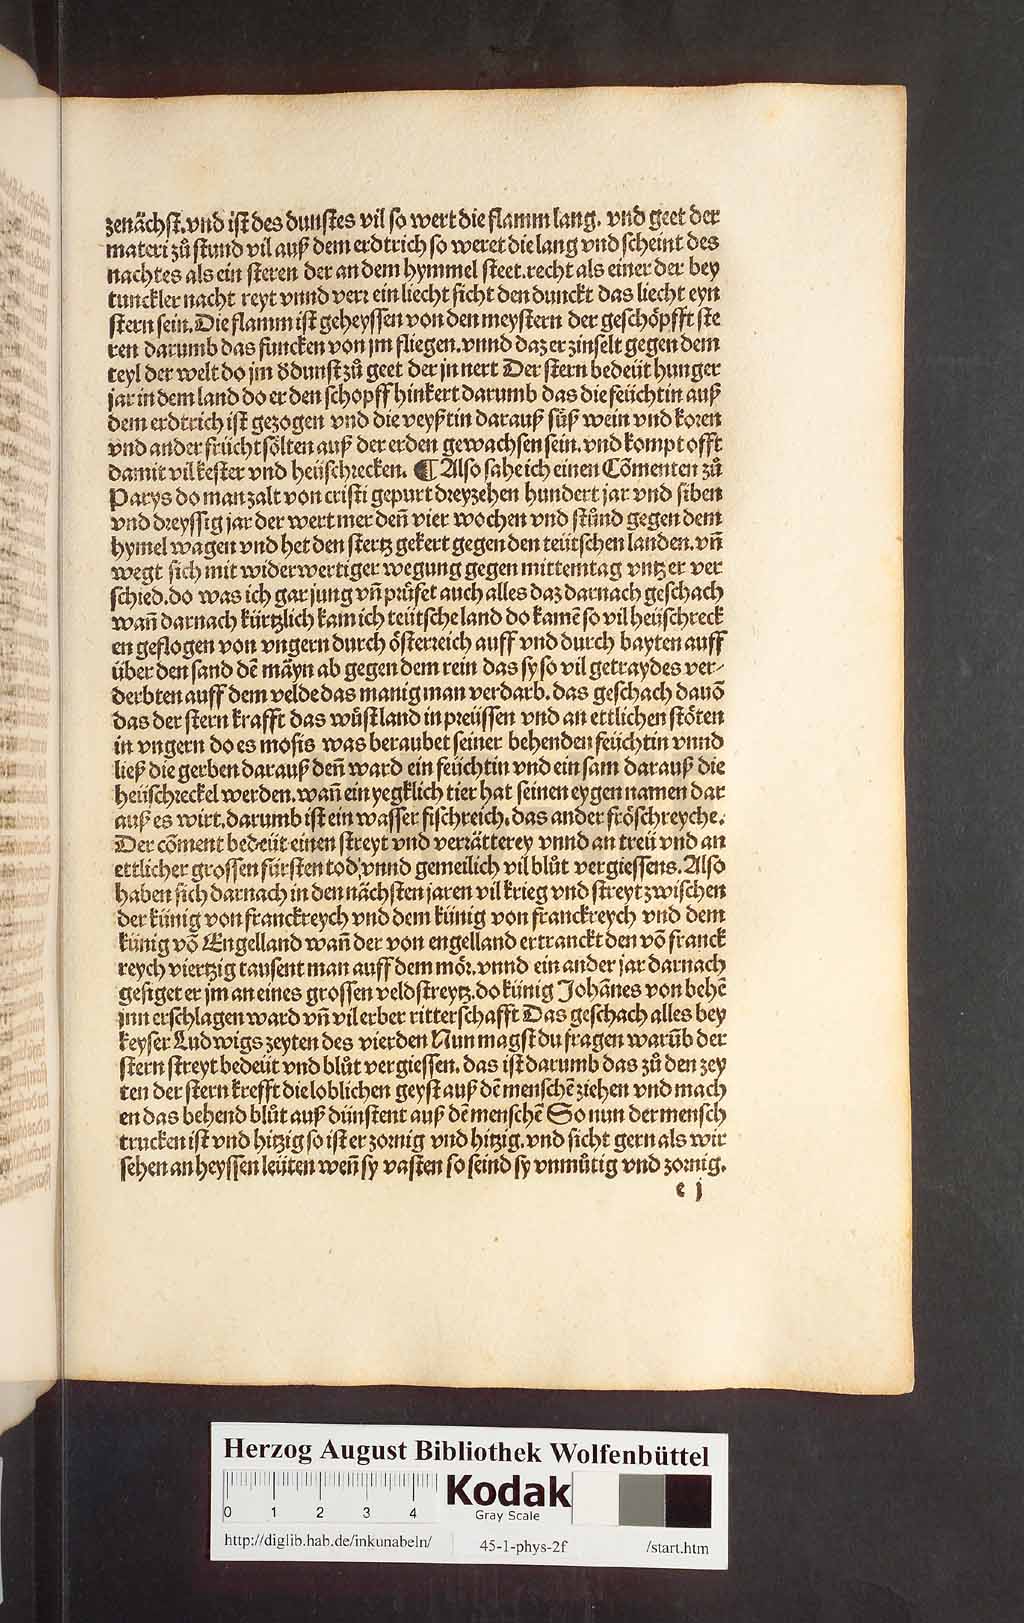 zenächst. vnd ist des dunstes vil so wert die flamm lang. vnd geet der
materi zů stund vil auß dem erdtrich so weret die lang vnd scheint des
nachtes als ein steren der an dem hymmel steet. recht als einer der bey
tunckler nacht reyt vnnd verr ein liecht sicht den dunckt das liecht eyn
stern sein. Die flamm ist geheyssen von den meystern der geschöpfft ste
ren darumb das funcken von jm fliegen. vnnd daz er zinselt gegen dem
teyl der welt do jm d dunst zů geet der jn nert Der stern bedeüt hunger
jar in dem land do er den schopff hin kert darumb das die feüchtin auß
dem erdtrich ist gezogen vnd die veyßtin darauß süß wein vnd koren
vnd ander frücht sölten auß der erden gewachsen sein. vnd kompt offt
damit vil kefter vnd heüschrecken. ¶ Also sahe ich einen Cōmenten zů
Parys do man zalt von cristi gepurt dreyzehen hundert jar vnd siben
vnd dreyssig jar der wert mer deñ vier wochen vnd stůnd gegen dem
hymel wagen vnd het den stertz gekert gegen den teütschen landen. vñ
wegt sich mit widerwertiger wegung gegen mittemtag vntz er ver
schied. do was ich gar jung vñ průfet auch alles daz darnach geschach
wañ darnach kürtzlich kam ich teütsche land do kamē so vil heüschreck
en geflogen von vngern durch österreich auff vnd durch bayren auff
über den sand dē mäyn ab gegen dem rein das sy so vil getraydes ver-
derbten auff dem velde das manig man verdarb. das geschach dauō
das der stern krafft das wůst land in preüssen vnd an ettlichen stöten
in vngern do es mosis was beraubet seiner behenden feüchtin vnnd
ließ die gerben darauß deñ ward ein feüchtin vnd ein sam darauß die
heüschreckel werden. wañ ein yegklich tier hat seinen eygen namen dar
auß es wirt. darumb ist ein wasser fischreich. das ander fröschreyche.
Der cōment bedeüt einen streyt vnd verrätterey vnnd an treü vnd an
ettlicher grossen fürsten tod, vnnd gemeilich vil blůt vergiessens. Also
haben sich darnach in den nächsten jaren vil krieg vnd streyt zwischen
der künig von franckreych vnd dem künig von franckreych vnd dem
künig vō Engelland wañ der von engelland ertranckt den vō franck
reych viertzig tausent man auff dem mör. vnnd ein ander jar darnach
gesiget er jm an eines grossen veldstreytz. do künig Johānes von behē
jnn erschlagen ward vñ vil erber ritterschafft Das geschach alles bey
keyser Ludwigs zeyten des vierden Nun magst du fragen warūb der
stern streyt bedeüt vnd blůt vergiessen. das ist darumb das zů den zey
ten der stern krefft die loblichen geyst auß dē menschē ziehen vnd mach
en das behend blůt auß dünstent auß dē menschē So nun der mensch
trucken ist vnd hitzig so ist er zornig vnd hitzig. vnd sicht gern als wir
sehen an heyssen leüten weñ sy vasten so seind sy vnmůtig vnd zornig.
e j
Herzog August Bibliothek Wolfenbüttel
0 1 2 3 4
Kodak
Gray Scale
http://diglib.hab.de/inkunabeln/ 45-1-phys-2f /start.htm